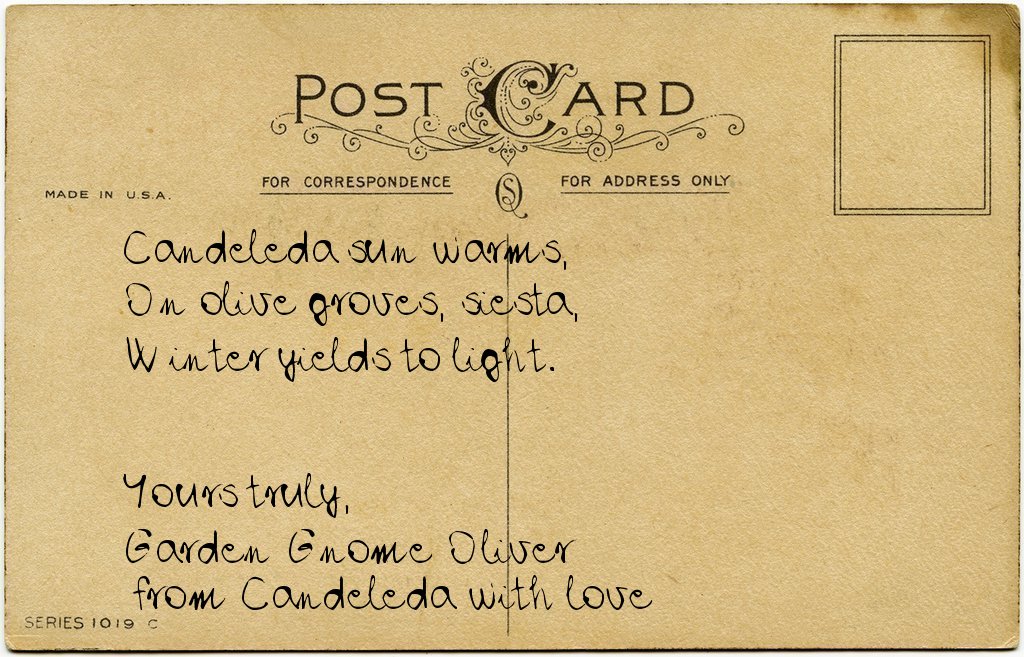 POST CARD
FOR CORRESPONDENCE
FOR ADDRESS ONLY
MADE IN U.S.A.
Candeleda sun warms,
On olive groves, siesta,
Winter yields to light.
Yours truly,
Garden Gnome Oliver
from Candeleda with love
SERIES 1019 C